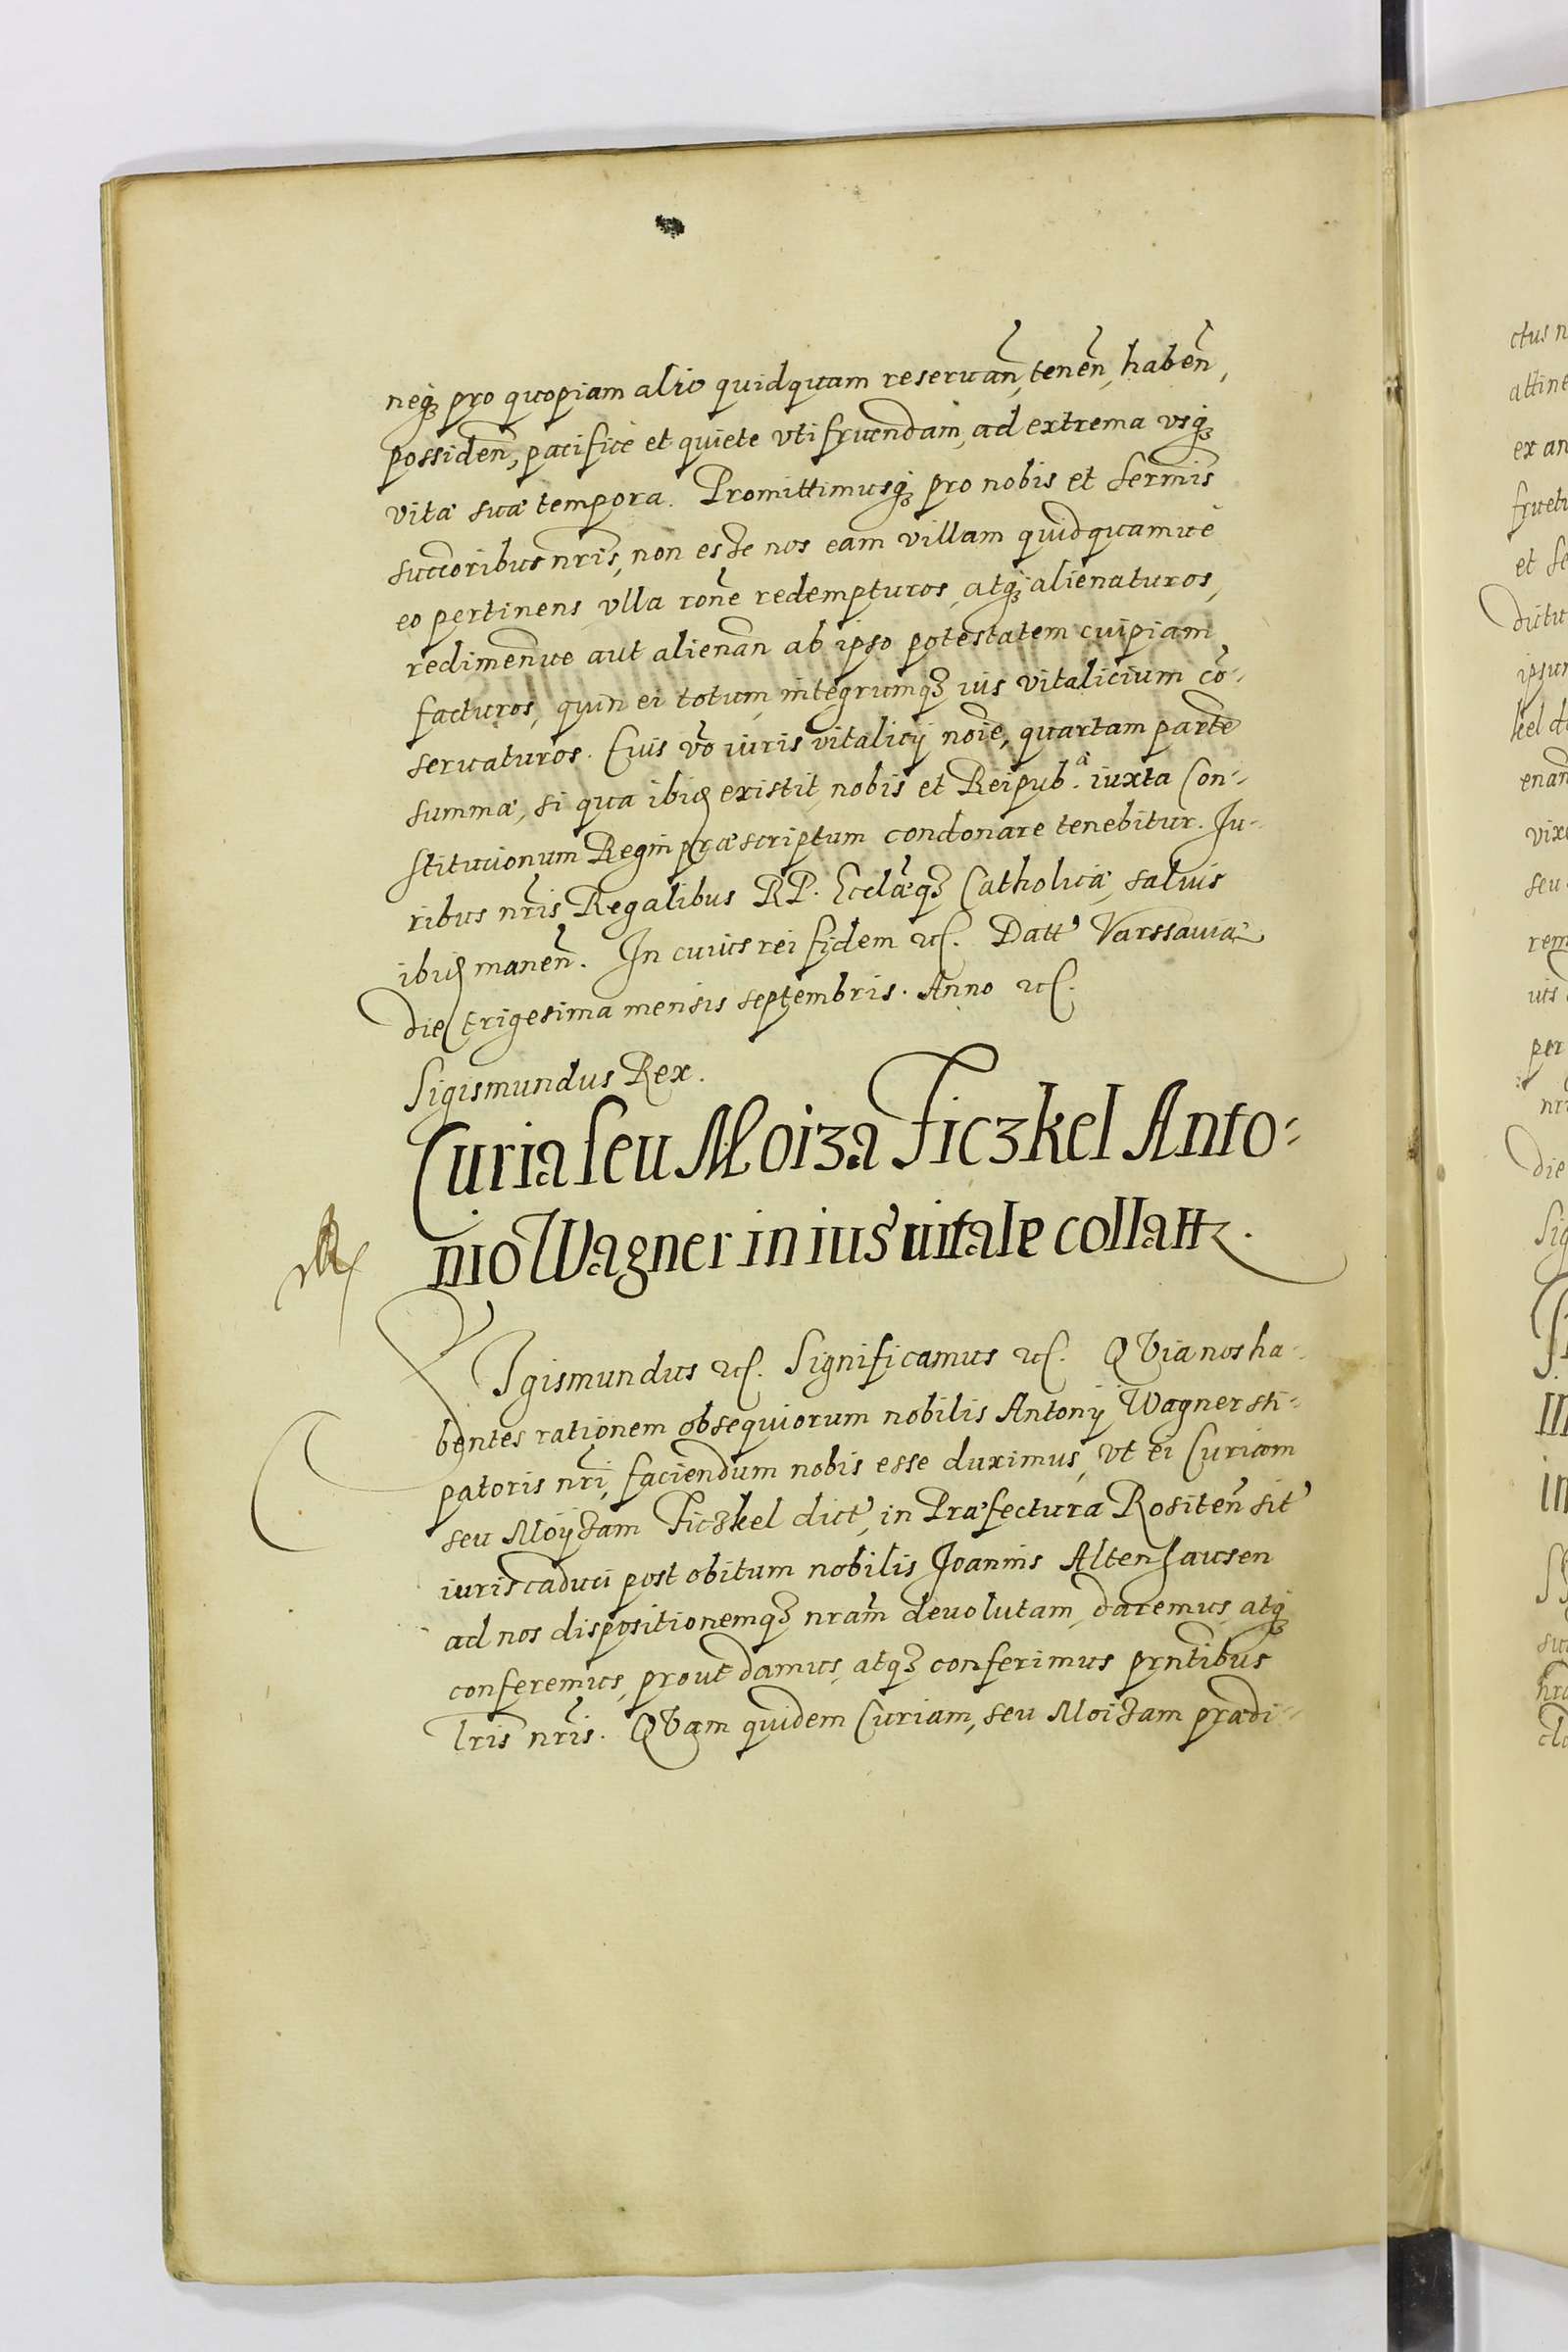 neq́ꝫ pro quopiam alio quidquam reseruan̄, tenen̄, haben̄,
possiden̄, pacificè et quiete vtifruendam, ad extrema vsq́ꝫ
vitæ suæ tempora. Promittimusq́ꝫ pro nobis et Sermis̄
succoribus nr̄is, non esse nos eam villam quidquamuè
eo pertinens vlla ron̄e redempturos, atq́ꝫ alienaturos,
redimen̄ue aut alienan̄ ab ipso potestatem cuipiam
facturos, quin ei totum, integrumqꝫ ius vitalicium cō-
seruaturos. Euis vō iuris vitalicij noīe, quartam partē
summæ, si qua ibiꝗ existit, nobis et Reipub.ᵃ̀ iuxta Con-
stitucionum Regni præscriptum condonare tenebitur. Iu-
ribus nr̄is Regalibus RP. Ecclǣqꝫ Catholicæ, saluis
ibiꝗ manen̄. In cuius rei fidem ꝛc. Datt' Varssauiæ
die trigesima mensis septembris. Anno ꝛc.
Sigismundus Rex.
Curia seu Moiza Ficzkel Anto-
nio Wagner in ius uitale collatt.
SIgismundus ꝛc. Significamus ꝛc. QVia nos ha-
bentes rationem obsequiorum nobilis Antonij Wagner sti-
patoris nr̄i, faciendum nobis esse duximus, vt ei Curiam
seu Moyzam Ficzkel dict', in Præfectura Rositen̄ sit'
iuris caduci post obitum nobilis Joannis Altenhausen
ad nos dispositionemqꝫ nram̄ deuolutam, daremus, atq́ꝫ
conferemus, prout damus, atqꝫ conferimus prn̄tibus
lr̄is nr̄is. QVam quidem Curiam, seu Moizam prædi-